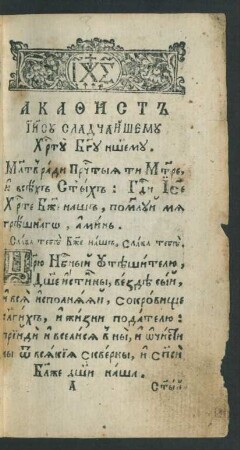 ІХ҃С
АКАФИСТЪ
Іи҃су сладчайшему
Хр҃ту Бг҃у нш҃ему.
Мл҃тва ради Прⷱ҇тыѧ ти Мт҃ре,
и всѣхъ Ст҃ыхъ: Гд҃и Іс҃е
Хр҃те Бж҃е нашъ, помилуй мѧ
грѣшнаго, аминь.
Слава тебѣ Бж҃е нашъ, слава тебѣ.
Цр҃ю Нбⷭ҇ный ѹтѣшителю,
Дш҃е истинны, вездѣ сый,
и всѧ исполнѧѧй, сокровище
благихъ, и жизни подателю:
прїиди и вселисѧ в ны, и ѡчисти
ны ѿ всѧкїѧ скверны, и спс҃и
Блж҃е дш҃и нашѧ.
А Ст҃ый